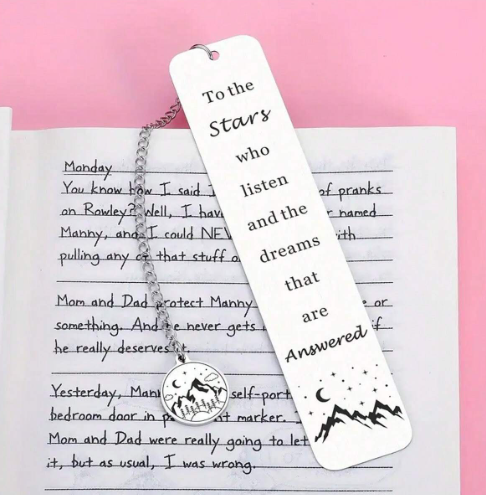 To the
Stars
who
listen
and the
dreams
that
are
Answered
Monday
You know how I said I of pranks
on Rowley? Well, I named
Manny, and I could
pulling any of that stuff
Mom and Dad protect Manny or
something. And he never gets if
he really deserves it.
Yesterday,
bedroom door in marker.
Mom and Dad were really going to let
it, but as usual, I was wrong.